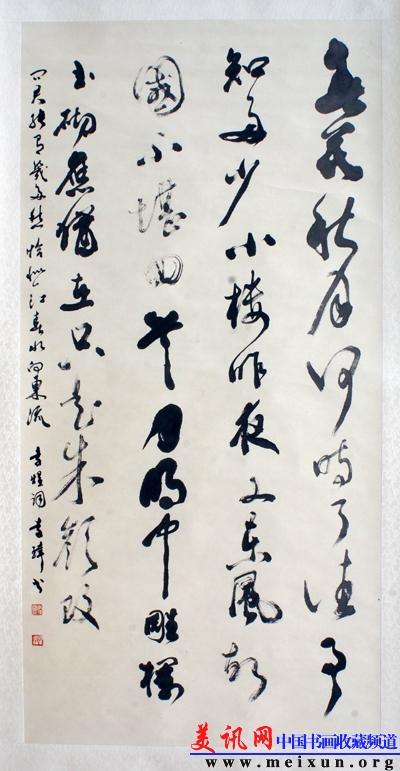 春花秋月何時了往事
知多少小楼昨夜又东風故
國不堪回首月明中雕欄
玉砌應猶在只是朱颜改
问君能有幾多愁恰似一江春水向東流 李煜词 李 书
美讯网 中国书画收藏频道
www.meixun.org